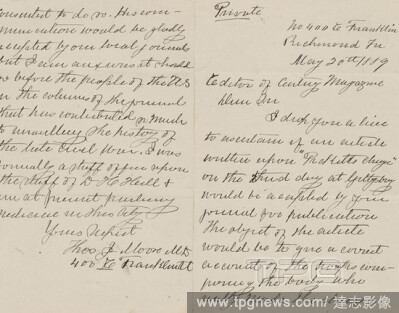 Private
No 400 E Franklin
Richmond
May 20th
Editor of Century Magazine
Dear Sir
I drop you a line
to ascertain if an article
written upon "Picketts charge"
on the third day at Gettysburg
would be accepted by your
journal for publication
The object of the article
would be to give a correct
account of the troops com-
posing the body who
consented to do so. His com-
munication would be gladly
accepted by our local journals
but I am anxious it should
go before the people of the US
in the columns of the journal
that has contributed so much
to unveiling the history of
the late Civil War. I was
formally a staff officer upon
the staff of D. H. Hill &
am at present practicing
medicine in this City
Yours Respect
Thos. J Moore MD
400 E Franklin St
TPG
www.tpgnews.com / 達志影像